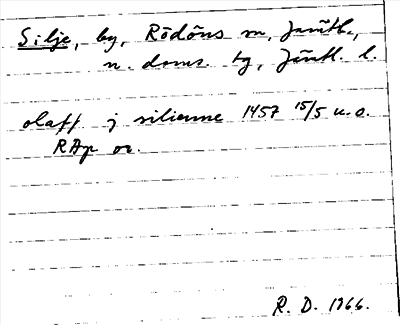 Silje, by, Rödöns sn, Jämtl.,
n. doms. tg, Jämtl. l.
olaff j silienne 1457 15/5 u.o.
RAp or.
R. D. 1966.